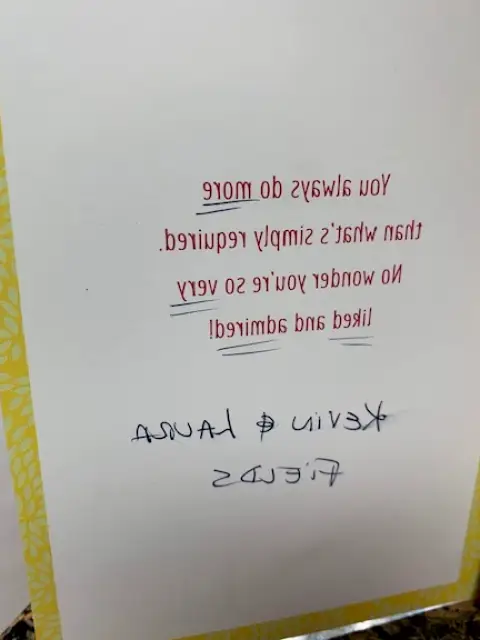 You always do more
than what's simply required.
No wonder you're so very
liked and admired!
KEVIN & LAURA
FIELDS